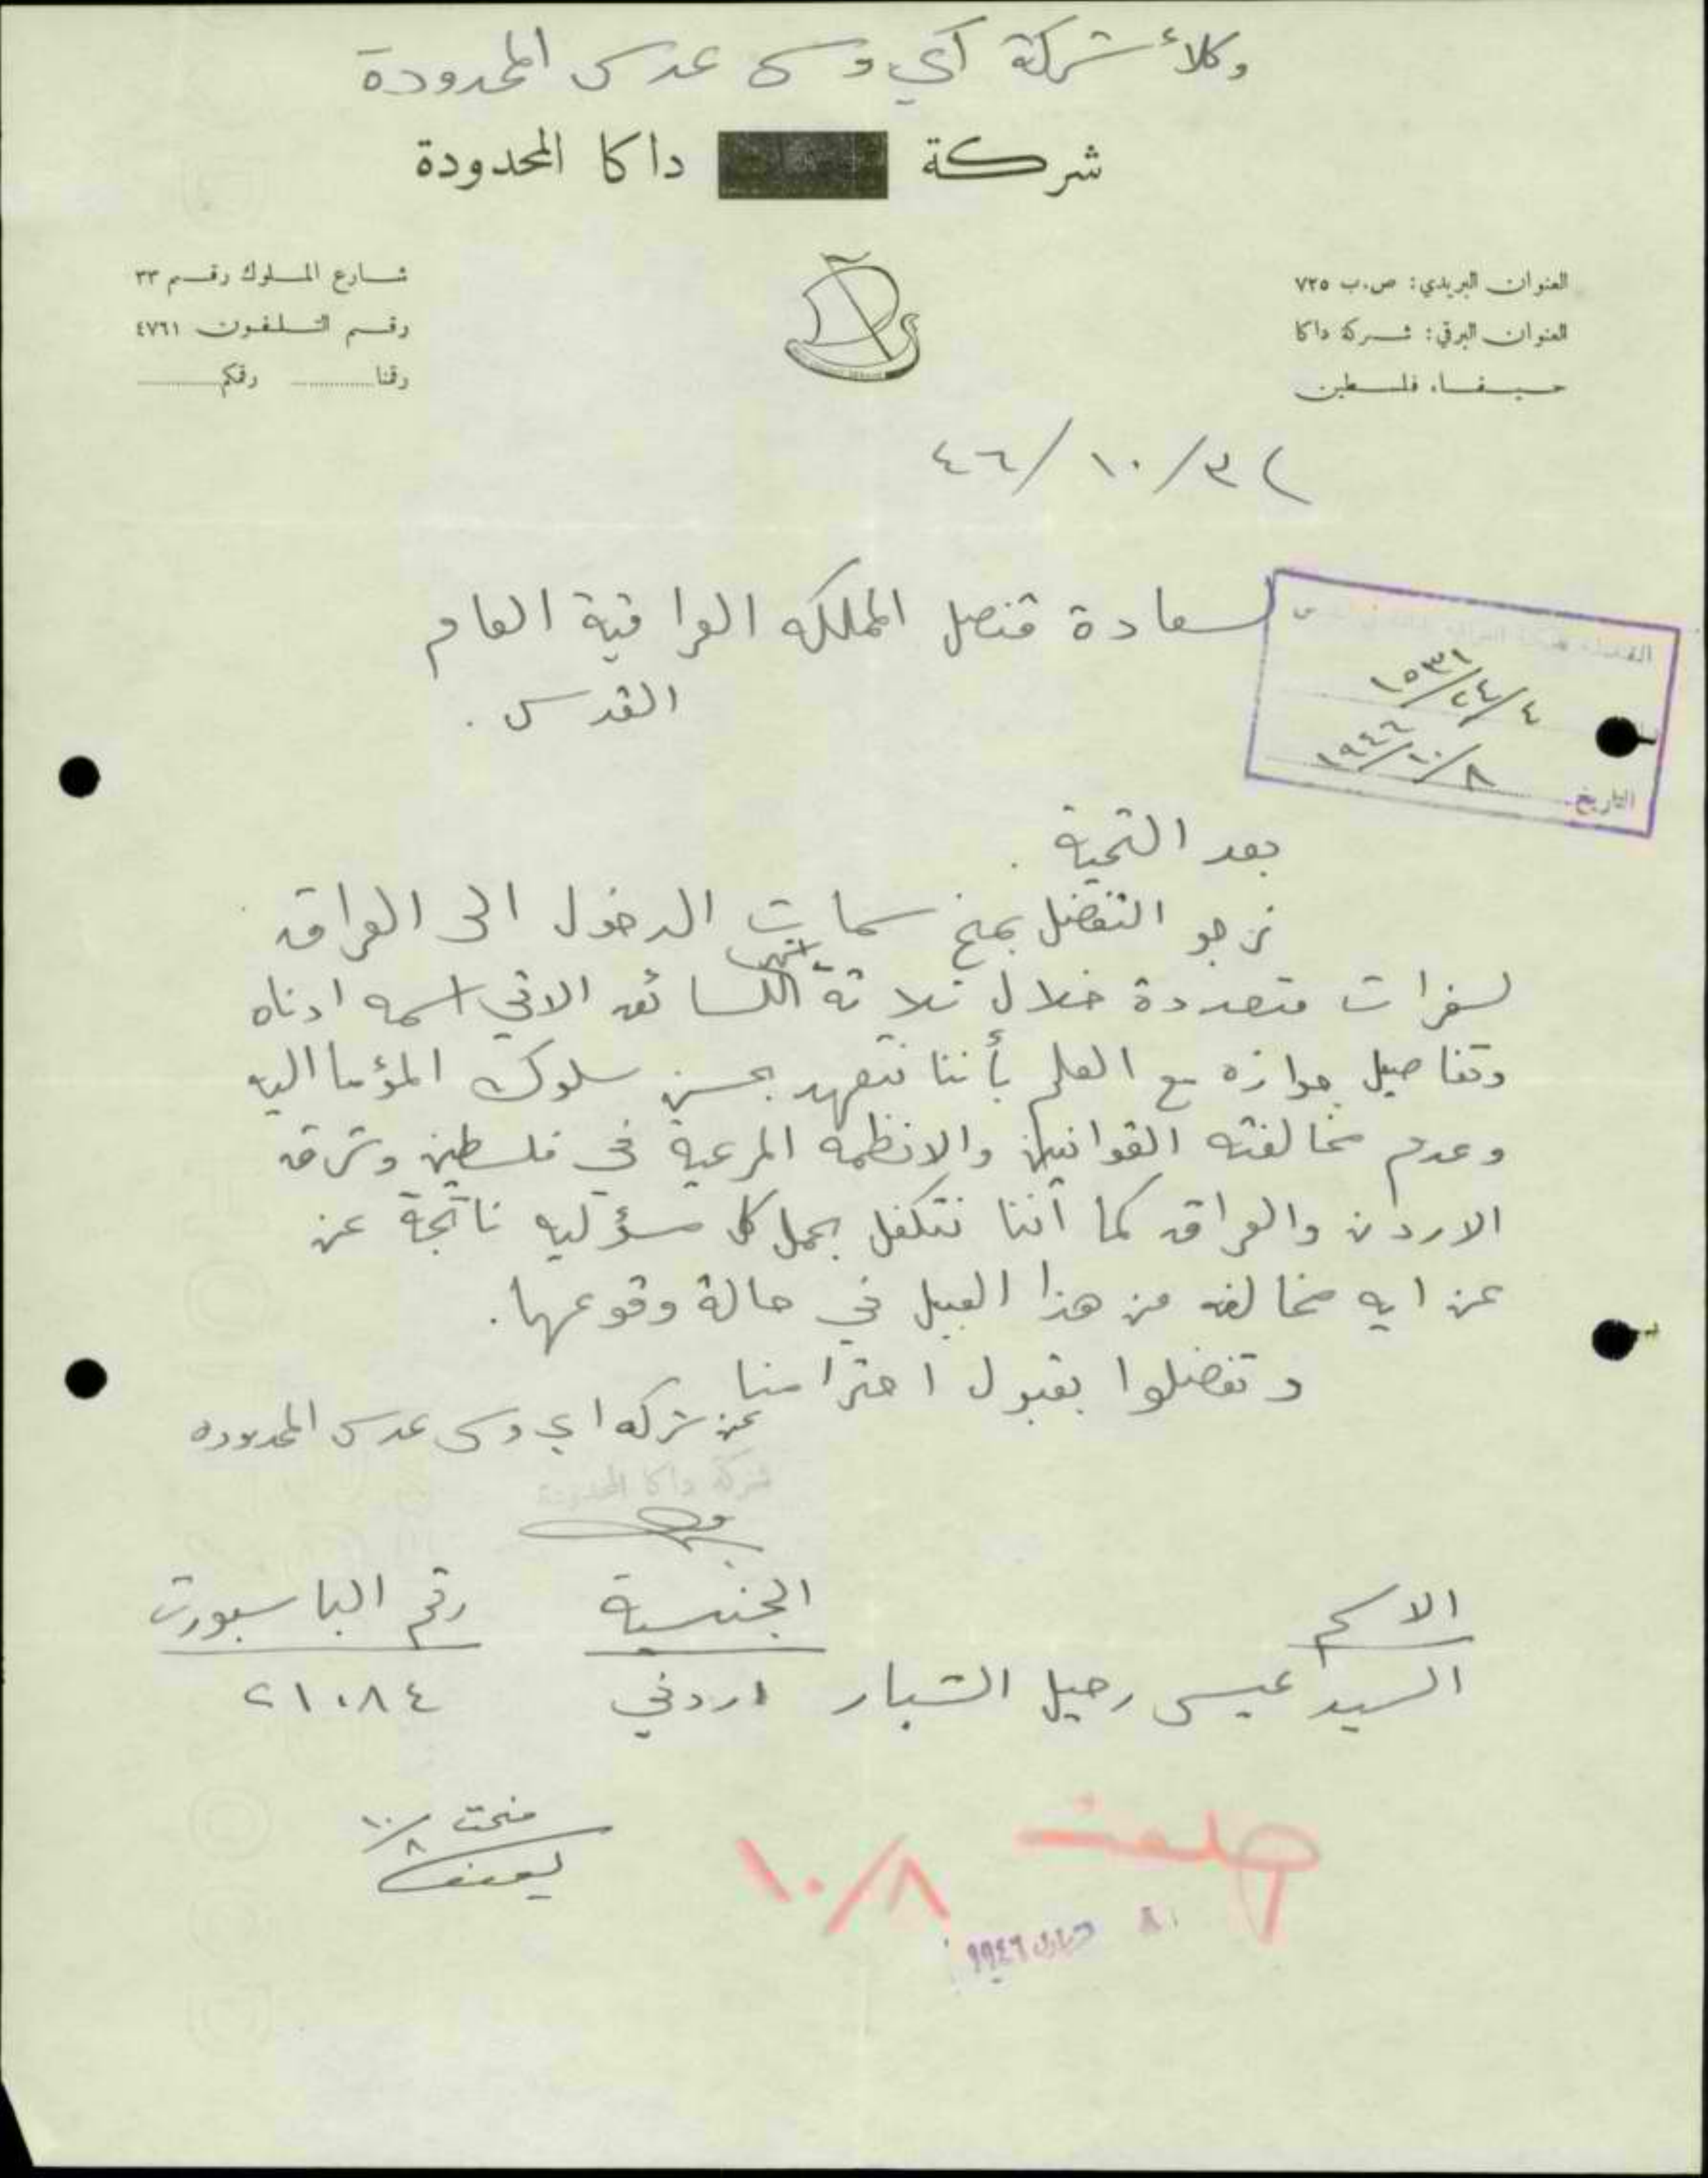 وكلاء شركة آي وسي عدس المحدودة
شركة داكا المحدودة
العنوان البريدي: ص.ب ٧٢٥
العنوان البرقي: شركة داكا
حيفا، فلسطين
شارع الملوك رقم ٣٣
رقم التلفون ٤٧٦١
رقنا ............ رقكم ............
٤٦/١٠/٣
سعادة قنصل المملكه العراقية العام
القدس.
١٥٣١/٢٤/٤
التاريخ ١٩٤٦/١٠/٨
بعد التحية.
نرجو التفضل بمنح سمات الدخول الى العراق
لسفرات متعددة خلال ثلاثة اشهر للسائق الاتي اسمه ادناه
وتفاصيل جوازه مع العلم بأننا نتعهد بحسن سلوك المؤما اليه
وعدم مخالفته القوانين والانظمه المرعية في فلسطين وشرق
الاردن والعراق كما أننا نتكفل بحمل كل مسؤليه ناتجة عن
عن ايه مخالفه من هذا القبيل في حالة وقوعها.
وتفضلوا بقبول احترامنا
عن شركه اي وسي عدس المحدوده
شركة داكا المحدودة
الاسم الجنسية رقم الباسبورت
السيد عيسى رحيل الشبار اردني ٢١٠٨٤
منحت ١٠/٨
١٠/٨
٨ ١٩٤٦